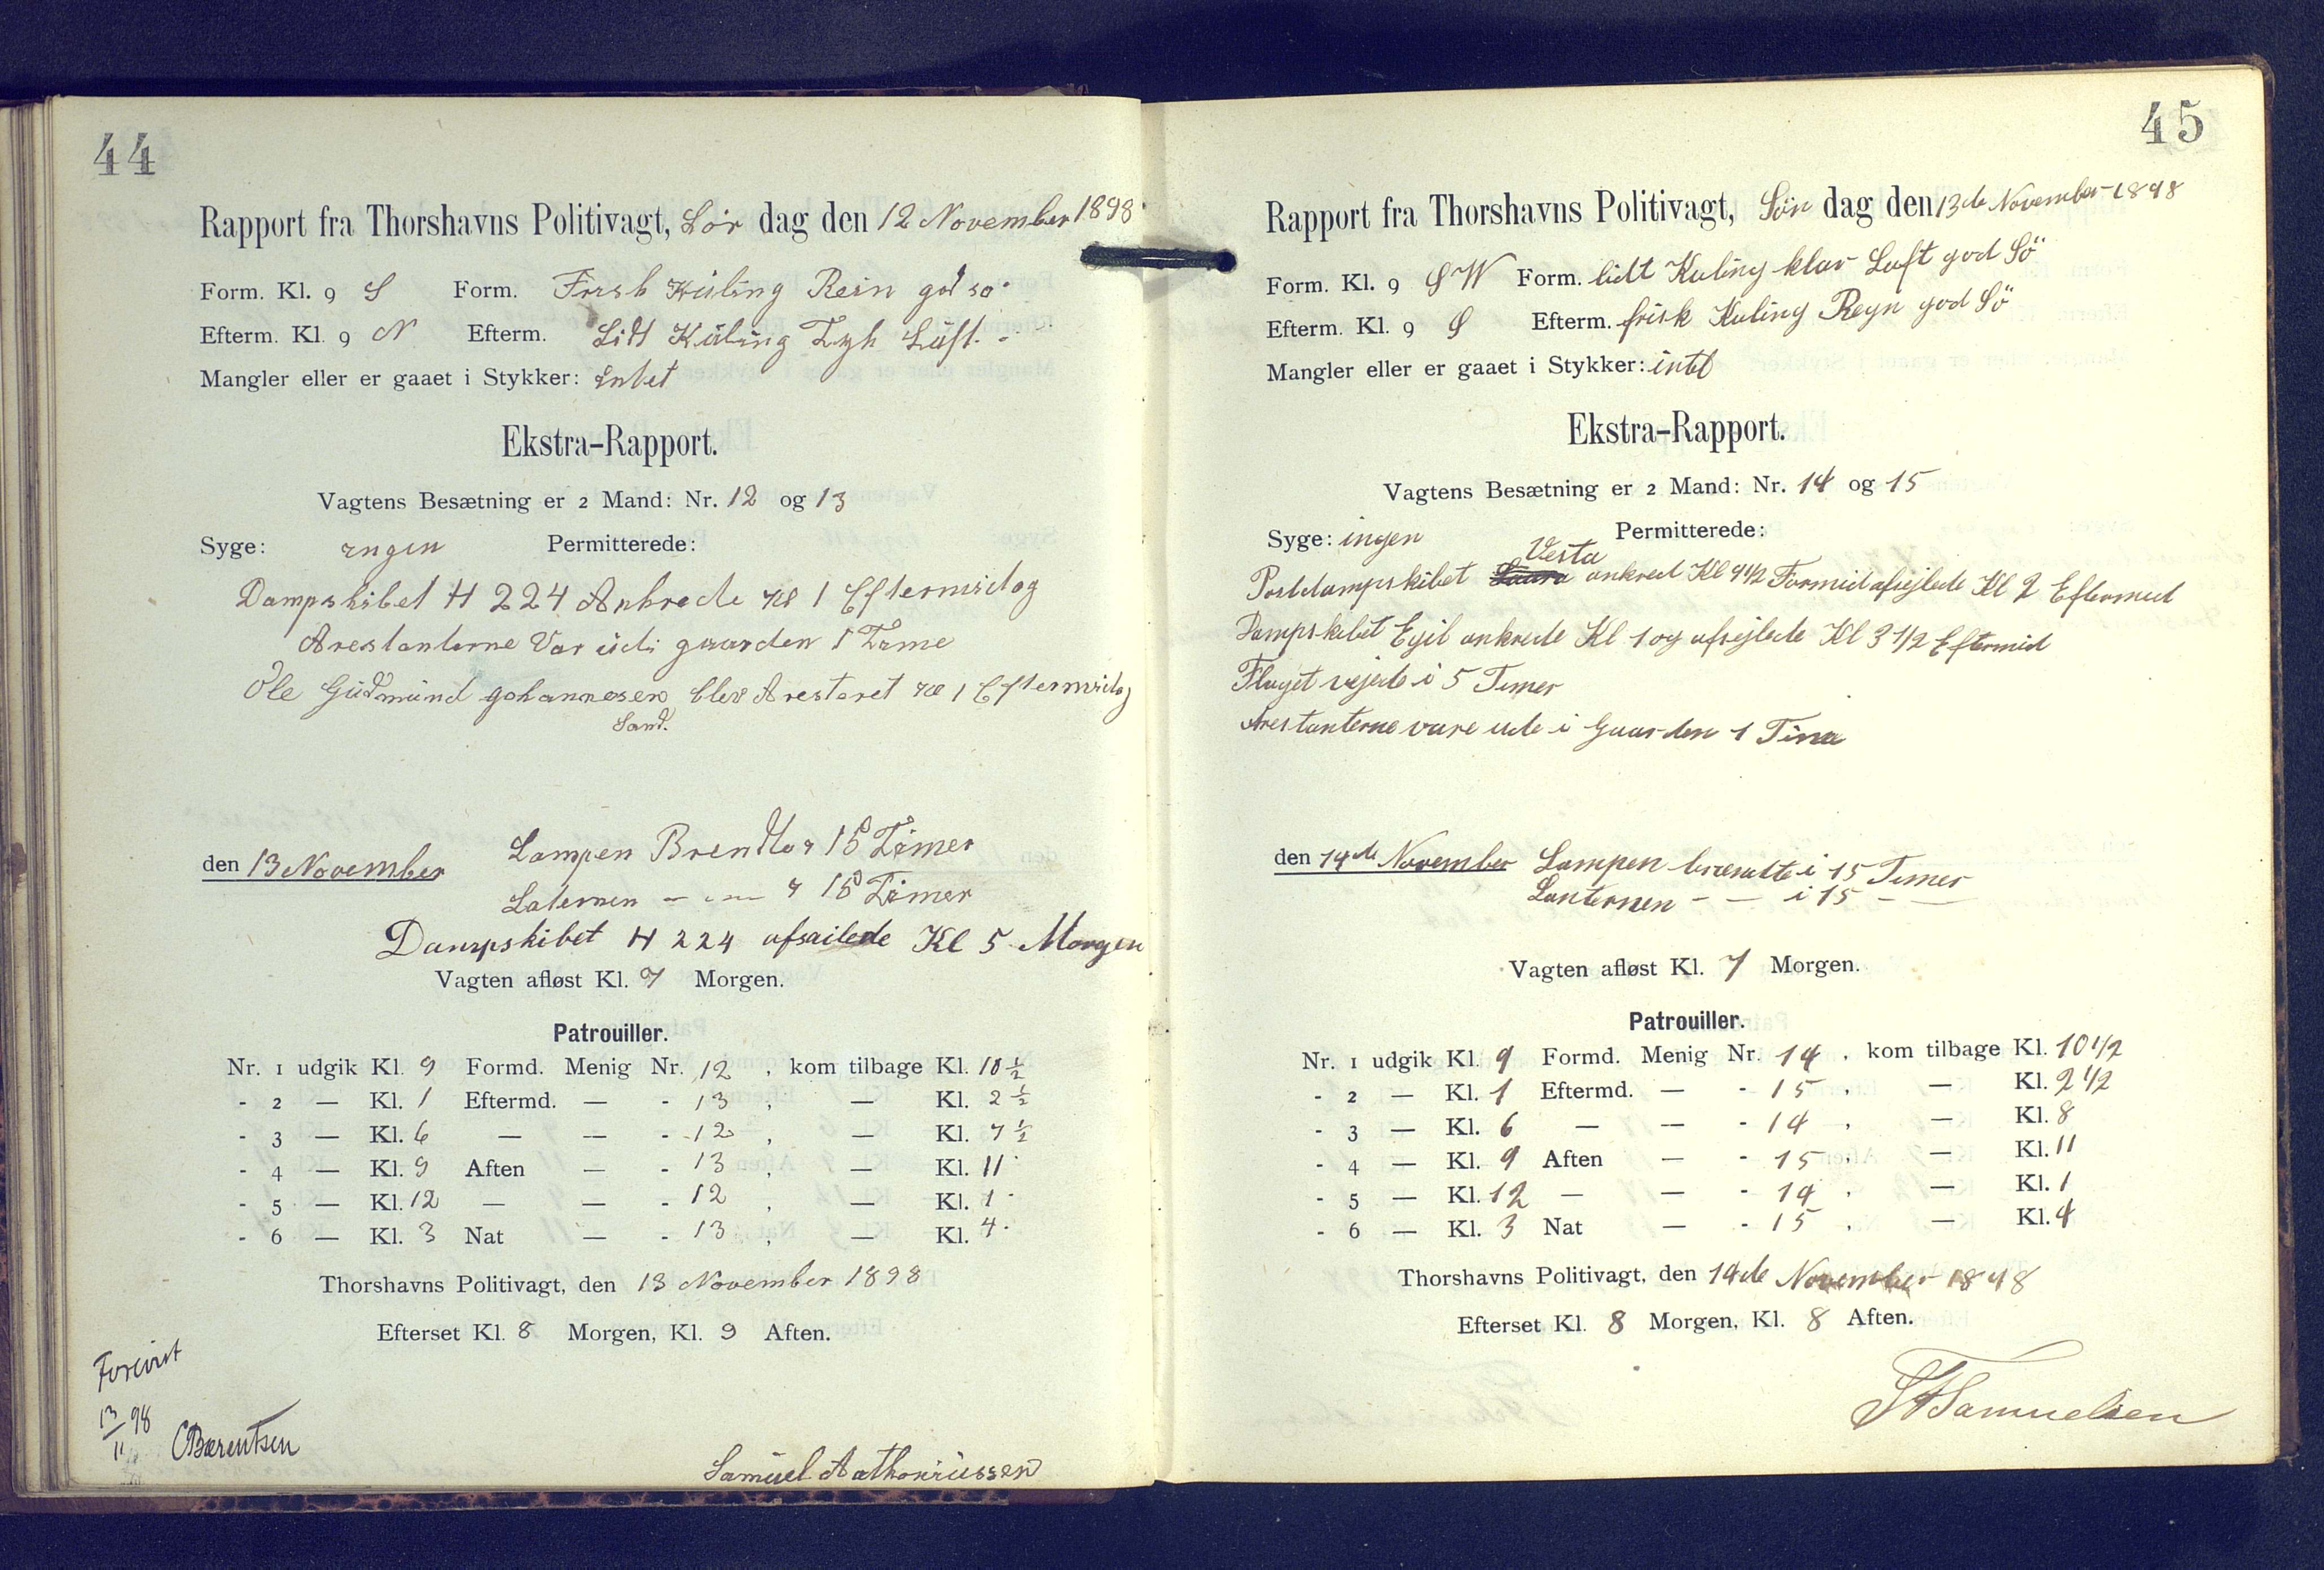 44
Rapport fra Thorshavns Politivagt, Lör dag den 12 November 1898
Form. Kl. 9 S Form. Frisk Küling Rein god sö
Efterm. Kl. 9 N Efterm. Lidt Küling Tyk Lüft
Mangler eller er gaaet i Stykker: Intet
Ekstra-Rapport.
Vagtens Besætning er 2 Mand: Nr. 12 og 13
Syge: Ingen Permitterede:
Dampskibet H 224 Ankrede Kl 1 Eftermidog
Arestanterne Var üdi gaarden 1 Time
Ole Güdmünd Johannesen blev Aresteret Kl 1 Eftermidag
Sand.
den 13 November Lampen Brendte i 15 Timer
Laternen — — i 15 Timer
Dampskibet H 224 afsailede Kl 5 Morgen
Vagten afløst Kl. 7 Morgen.
Patrouiller.
Nr. 1 udgik Kl. 9 Formd. Menig Nr. 12, kom tilbage Kl. 10 ½
- 2 — Kl. 1 Eftermd. — - 13, — Kl. 2 ½
- 3 — Kl. 6 — — - 12, — Kl. 7 ½
- 4 — Kl. 9 Aften — - 13, — Kl. 11
- 5 — Kl. 12 — — - 12, — Kl. 1
- 6 — Kl. 3 Nat — - 13, — Kl. 4
Thorshavns Politivagt, den 13 November 1898
Efterset Kl. 8 Morgen, Kl. 9 Aften.
Forevist
13/11 98
CBærentsen
Samüel Aathoniüssen
45
Rapport fra Thorshavns Politivagt, Sön dag den 13de November 1898
Form. Kl. 9 SW Form. lidt Kuling klar Luft god Sö
Efterm. Kl. 9 S Efterm. frisk Kuling Regn god Sö
Mangler eller er gaaet i Stykker: intet
Ekstra-Rapport.
Vagtens Besætning er 2 Mand: Nr. 14 og 15
Syge: ingen Permitterede:
Vesta
Postdampskibet Laura ankred Kl 9 1/2 Formid afsejlede Kl 2 Eftermid
Dampskibet Egil ankrede Kl 1 og afsejlede Kl 3 1/2 Eftermid
Flaget vejede i 5 Timer
Arestanterne vare ude i Gaarden 1 Time
den 14de November Lampen brændte i 15 Timer
Lanternen - — i 15 - —
Vagten afløst Kl. 7 Morgen.
Patrouiller.
Nr. 1 udgik Kl. 9 Formd. Menig Nr. 14, kom tilbage Kl. 10 1/2
- 2 — Kl. 1 Eftermd. — - 15, — Kl. 2 1/2
- 3 — Kl. 6 — — - 14, — Kl. 8
- 4 — Kl. 9 Aften — - 15, — Kl. 11
- 5 — Kl. 12 — — - 14, — Kl. 1
- 6 — Kl. 3 Nat — - 15, — Kl. 4
Thorshavns Politivagt, den 14de November 1898
Efterset Kl. 8 Morgen, Kl. 8 Aften.
Samuelsen